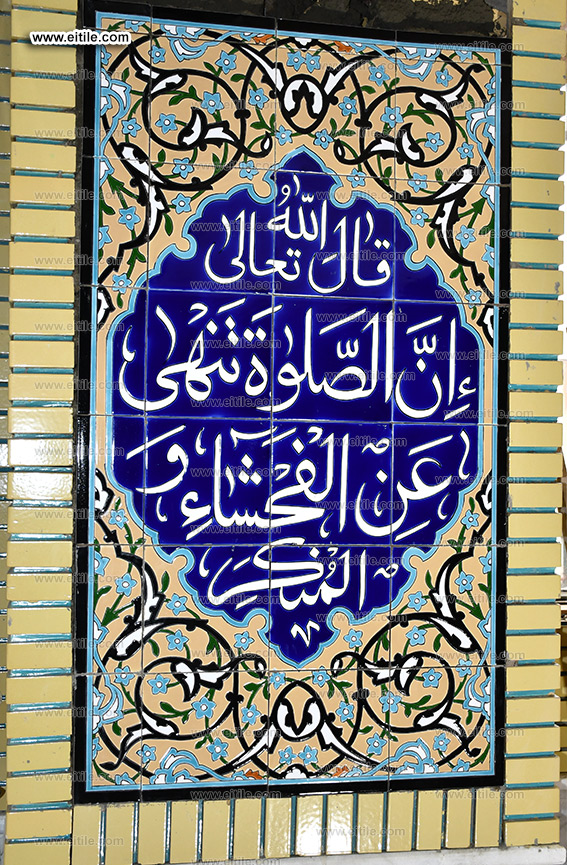 www.eitile.com
قال الله تعالى
إنَّ الصَّلوةَ تَنْهَى
عَنِ الْفَحْشاءِ وَ
الْمُنْكَرِ